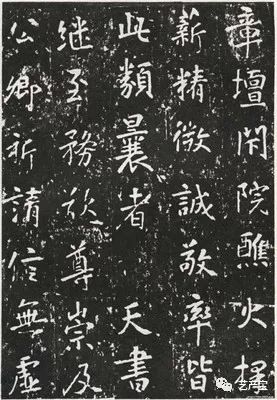 章壇院醮火
薪精微誠敬率皆
此類曩者 天書
繼至務於尊崇及
公卿祈請信無虛